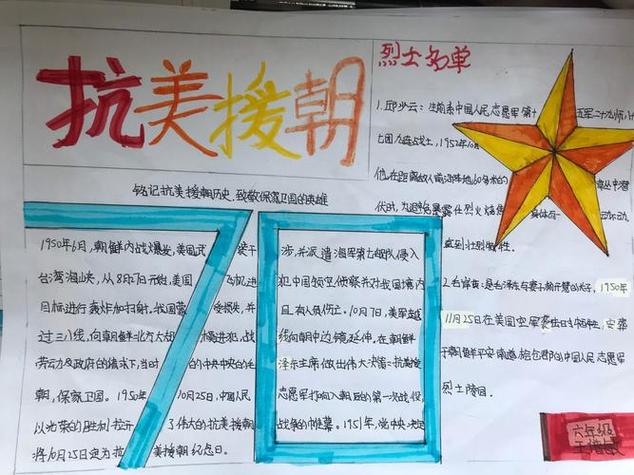 抗美援朝
铭记抗美援朝历史,致敬保家卫国的英雄
1950年6月,朝鲜内战爆发,美国武装干涉,并派遣海军第七舰队侵入
台湾海峡,从8月27日开始,美国飞机进犯中国领空侦察并对我国境内
目标进行轰炸和扫射,我国蒙受损失,并且有人员伤亡。10月7日,美军越
过三八线,向朝鲜北方大举进犯,战线向朝中边境延伸。在朝鲜
劳动及政府的请求下,当时的中央中央的毛泽东主席做出伟大决策:抗美援
朝,保家卫国。1950年10月25日,中国人民志愿军打响入朝后的第一次战役,
以光荣的胜利拉开了伟大的抗美援朝战争的帷幕。1951年,党中央决定
将10月25日定为抗美援朝纪念日。
烈士名单
1.邱少云:生前系中国人民志愿军第十五军二十九师八
七团九连战士,1952年10月
他在距离敌人前沿阵地60多米的草丛中潜
伏时,为避免暴露任烈火烧焦身体而一动不动,
直到壮烈牺牲。
2.毛岸英:是毛泽东与妻子杨开慧的长子,1950年
11月25日在美国空军袭击中牺牲,安葬
于朝鲜平安南道桧仓郡的中国人民志愿军
烈士陵园。
六年级